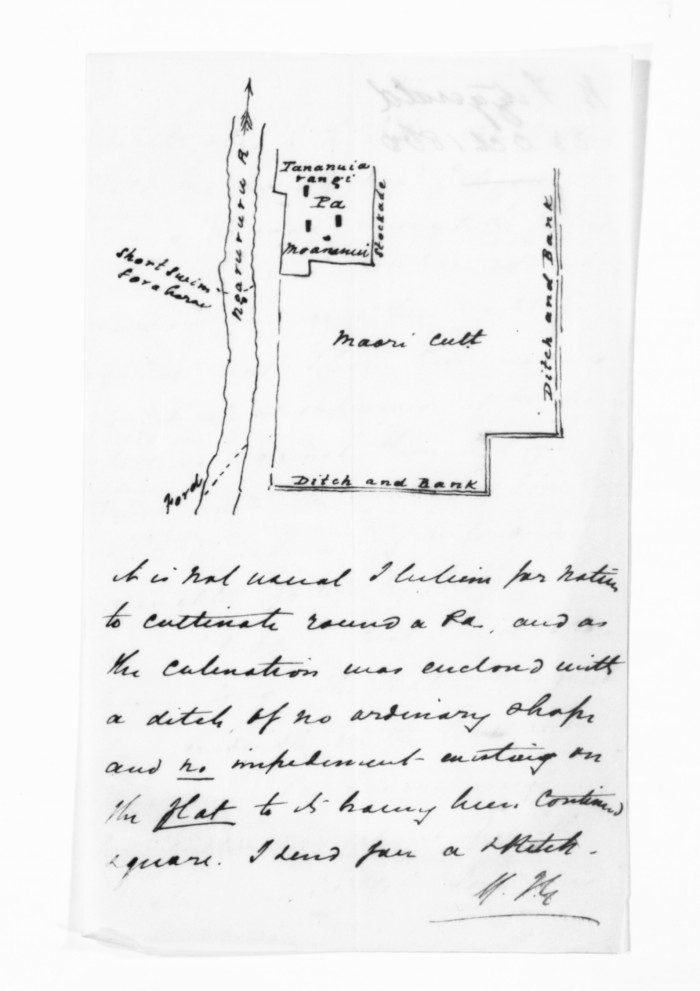 Ngarururu R
Tananuia
rangi
Pa
Moananui
Stockade
Short Swim
for a horse
Maori Cult
Ditch and Bank
Ford
Ditch and Bank
it is not usual I believe for natives
to cultivate round a Pa, and as
the cultivation was enclosed with
a ditch of no ordinary shape
and no impediment existing on
the flat to its having been continued
square. I send you a sketch.